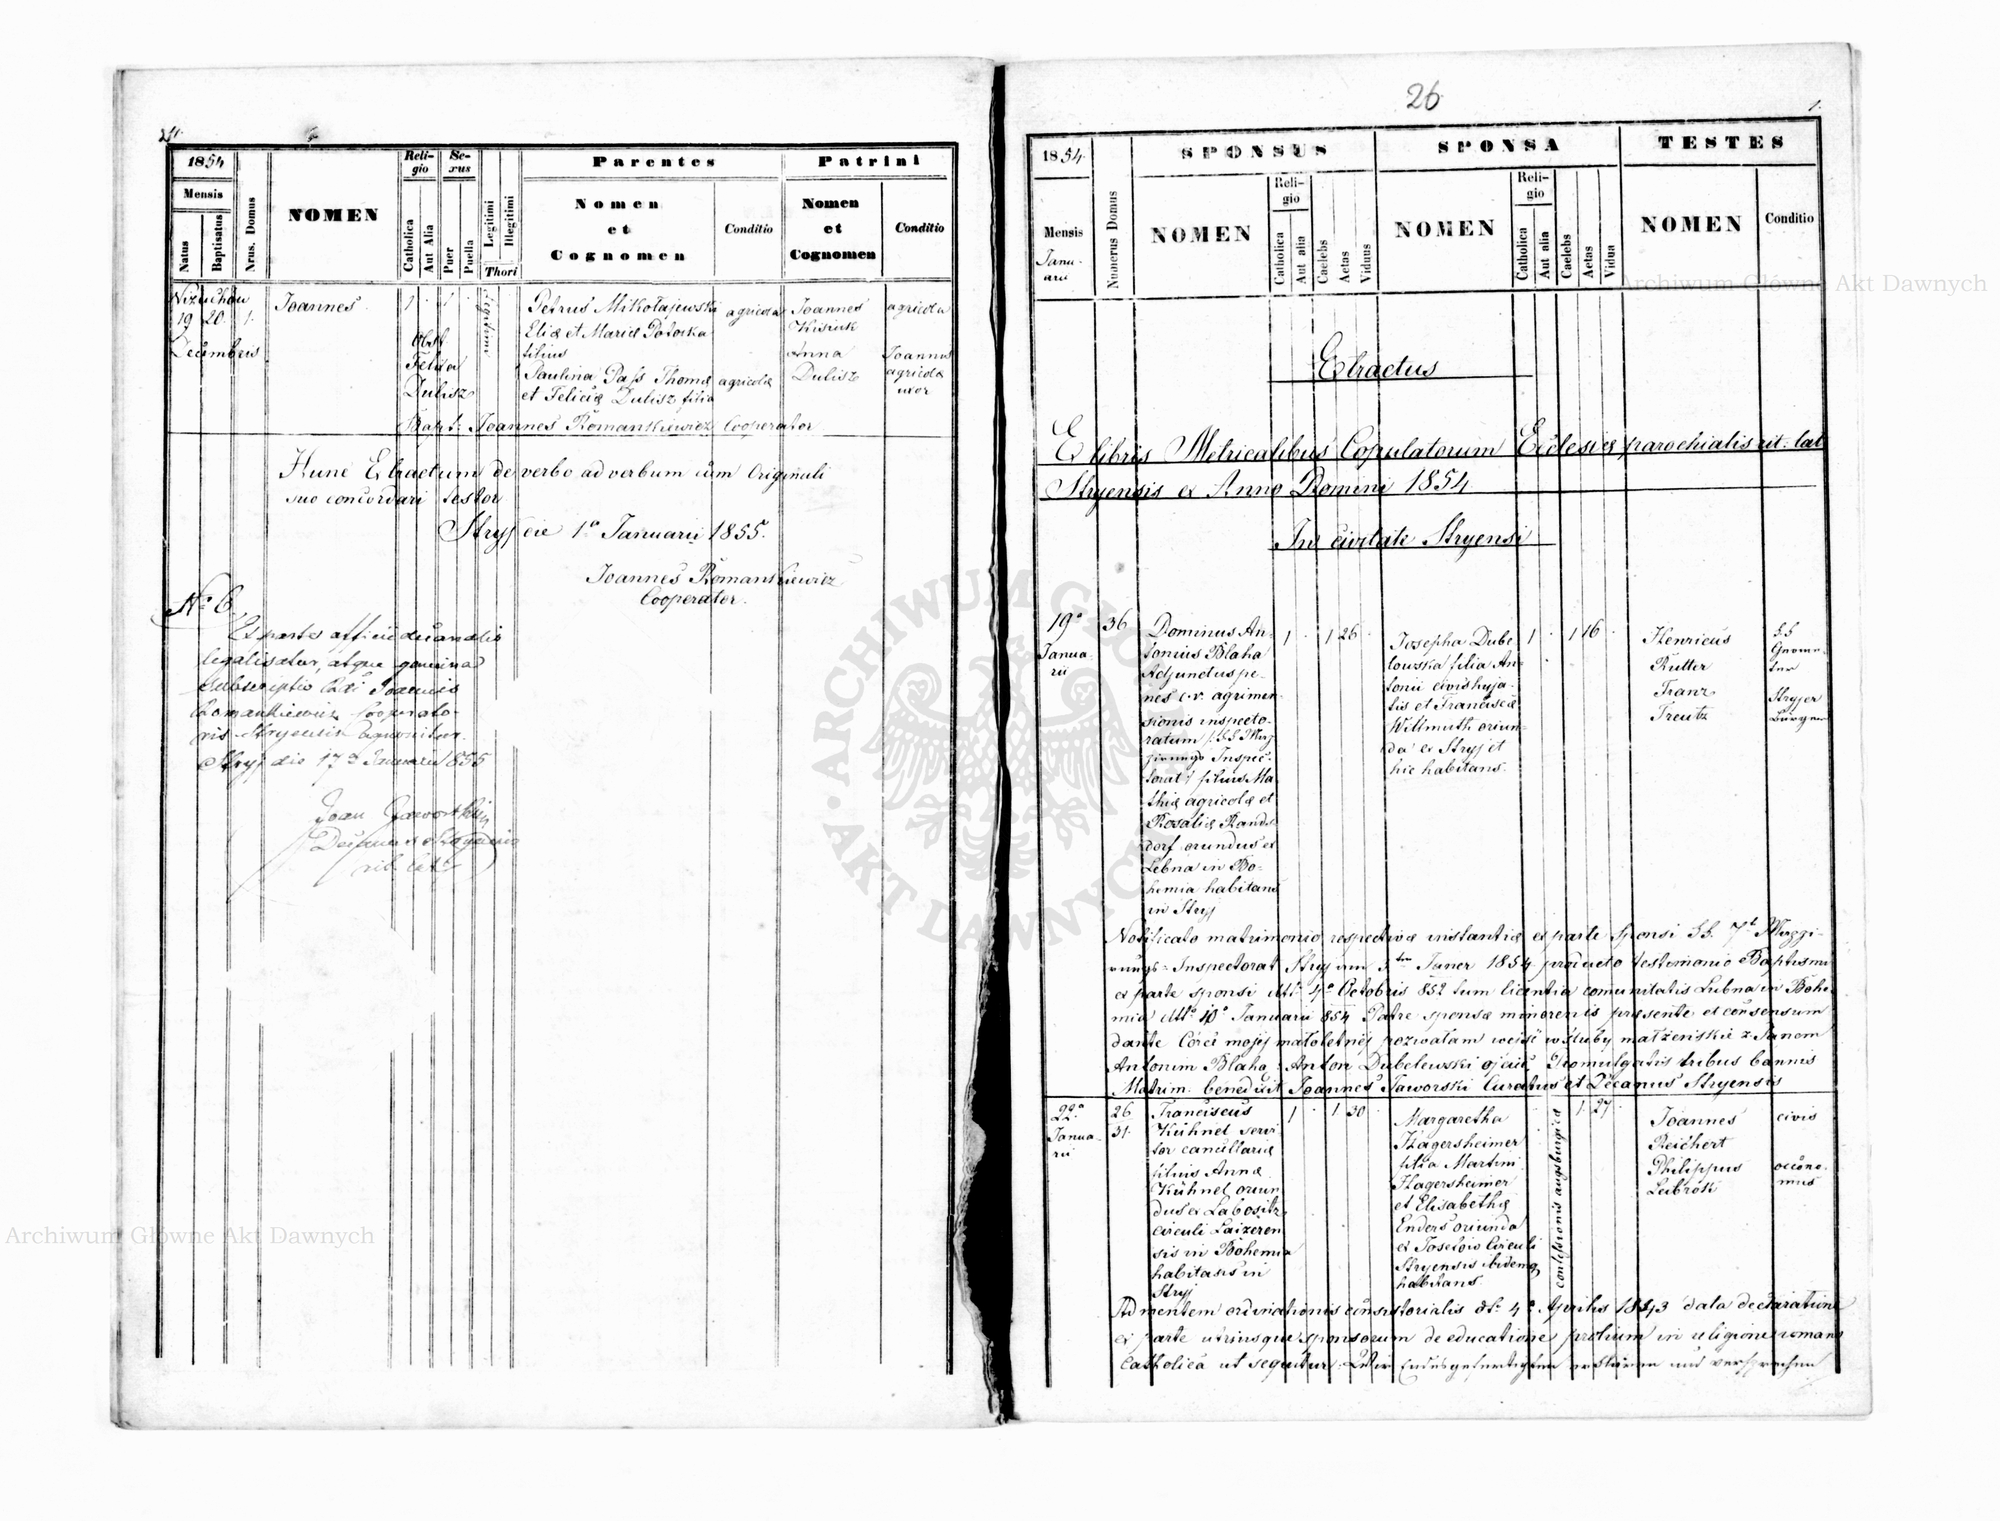 1854
Mensis
Natus
Baptisatus
Nrus. Domus
NOMEN
Religio
Catholica
Aut Alia
Sexus
Puer
Puella
Legitimi
Illegitimi
Thori
Parentes
Nomen
et
Cognomen
Conditio
Patrini
Nomen
et
Cognomen
Conditio
19 20. 1.
Decembris
Joannes
1 . 1 .
Obst
Dulisz
Petrus Mikołajewski
Eliæ et Mariæ Potoska
filius
Paulina Pass Thomæ
et Feliciæ Dulisz filia
agricola
agricolæ
Joannes
Kisiuk
Anna
Dulisz
agricola
Joannis
agricolæ
uxor
Bapt: Joannes Romankiewicz Cooperator
Hunc Extractum de verbo ad verbum cum Originali
suo concordari testor
Stryj die 1a Januarii 1855.
Joannes Romankiewicz
Cooperator.
No 6.
Ex parte officii decanalis
legalisatur, atque genuina
subscriptio Joannis
Romankiewicz Cooperato-
ris Stryensis
Stryj die 17a Januarii 1855
26
1.
1854.
Mensis
Janu-
arii
Numerus Domus
SPONSUS
NOMEN
Religio
Catholica
Aut alia
Caelebs
Aetas
Viduus
SPONSA
NOMEN
Religio
Catholica
Aut alia
Caelebs
Aetas
Vidua
TESTES
NOMEN
Conditio
Extractus
Ex libris Metricalibus Copulatorum Ecclesiæ parochialis rit. lat
Stryensis ex Anno Domini 1854.
In civitate Stryensi
19a
Janua-
rii
36
Dominus An-
tonius Blaha
Adjunctus pe-
nes c.r. agrimen-
sionis inspecto-
ratum
Inspec-
torat filius Ma-
thiæ agricolæ et
Rosaliæ Rands-
dorf oriundus ex
Lubna in Bo-
hemia habitans
in Stryj
1 . 1 26 .
Josepha Dube-
lowska filia An-
tonii civis huja-
tis et Franciscæ
Wittmuth oriun-
da ex Stryj et
hic habitans.
1 . 1 16 .
Henricus
Rutter
Franz
Treutz
Geome-
ter
Stryjer
Bürger
Notificato matrimonio respectivæ instantiæ ex parte Sponsi
Inspectorat Stryj am 3ten Jäner 1854 producto testimonio Baptismi
ex parte sponsi dtto 4a Octobris 852 tum licentia comunitatis Lubna in Bohe-
mia dtto 10a Januarii 854 Patre sponsæ minorenis præsente et consensum
dante Córce mojej małoletniej pozwalam weiść w śluby małżeńskie z Panem
Antonim Blaha: Anton Dubelewski ojciec. Promulgatis tribus bannis
Matrim. benedixit Joannes Jaworski Curatus et Decanus Stryensis
22a
Janua-
rii
26
31.
Franciscus
Kühnel servi-
tor cancellariæ
filius Annæ
Kühnel oriun-
dus ex Labositz
circuli
sis in Bohemia
habitans in
Stryj
1 . 1 30 .
Margaretha
Hagersheimer
filia Martini
Hagersheimer
et Elisabethæ
Enders oriunda
ex Josefow Circuli
Stryensis ibidemq
habitans
confessionis augsburgicæ
1. 27 .
Joannes
Reichert
Philippus
Leibrok
civis
oecono-
mus
Ad mentem ordinationis consistorialis dt. 4a Aprilis 1843 data declaratione
ex parte utriusque sponsorum de educatione prolium in religione romano
Catholica ut sequitur: Wir Endesgefertigten erklären und versprechen
Archiwum Główne Akt Dawnych
Archiwum Główne Akt Dawnych
ARCHIWUM GŁÓWNE
AKT DAWNYCH